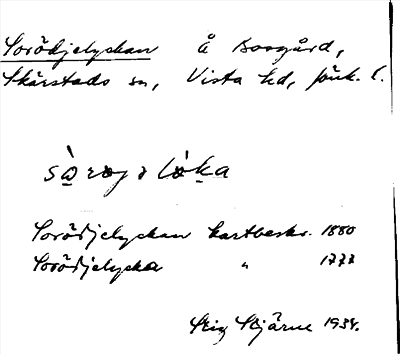 Sorödjelyckan å Bosgård,
Skärstads sn, Vista hd, Jönk. l.
sòrøjəlòka
Sorödjelyckan kartbeskr. 1880
Sorödjelycka " 1773
Stig Stjärne 1934.